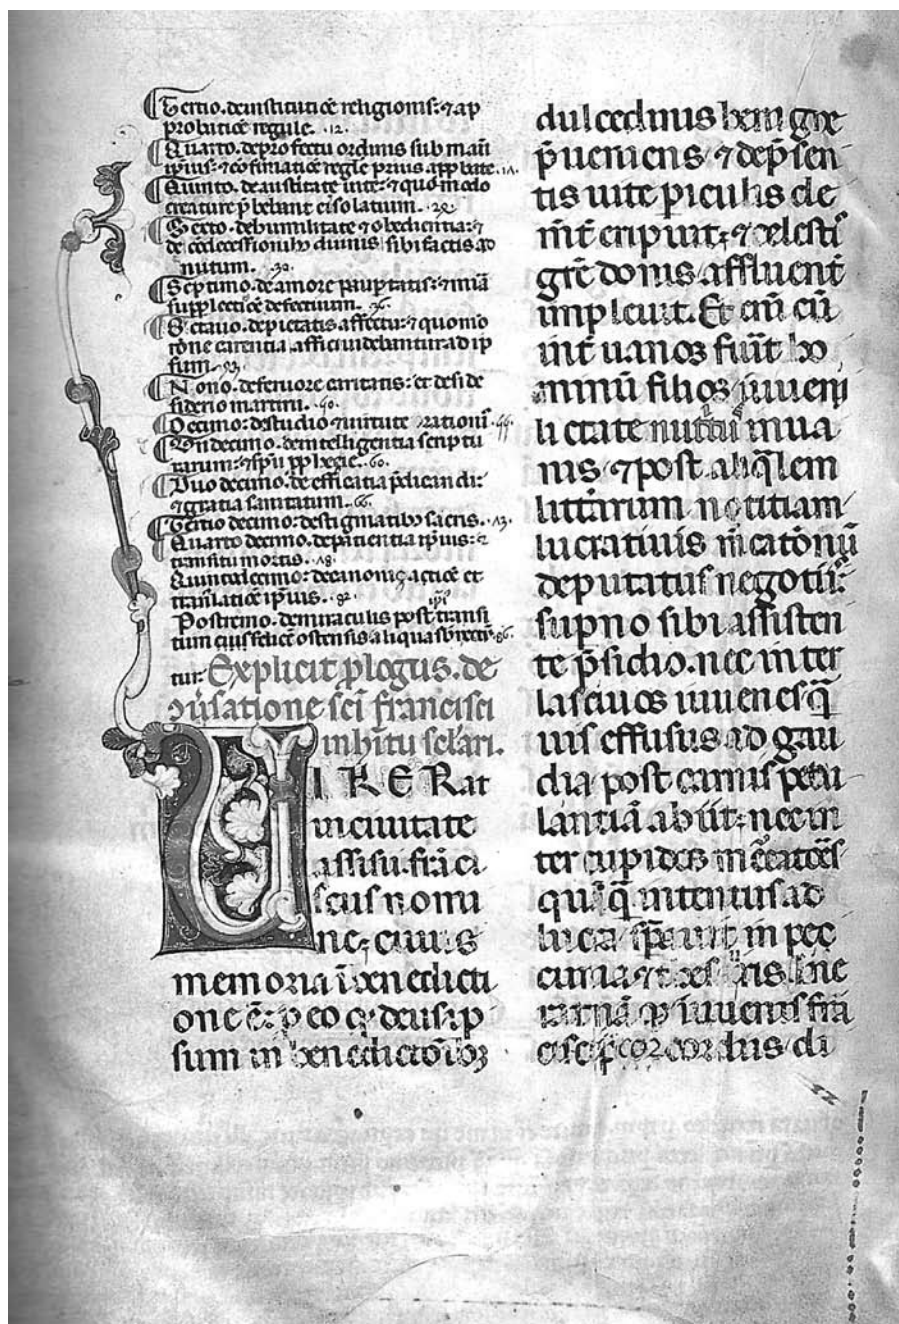 Tertio. de institutiōe religionis: ⁊ ap
probatiōe regule. .12.
Quarto. de profectu ordinis sub manu
ip̄ius: ⁊ cōfirmatiōe regl̄e prius app̄bate.
Quinto. de austitate uite: ⁊ quōmodo
creature p̄bebant ei solatium.
Sexto. de humilitate ⁊ obedientia: ⁊
de cōdecessionib; diuinis sibi factis ad
nutum.
Septimo. de amore paup̄tatis: ⁊ mirā
supplectiōe defectuum.
Octauo. de pietatis affectu: ⁊ quomō
rōne carentia affici uidebantur ad ip̄
sum.
Nono. de feruore caritatis: et deside
siderio martirii.
Decimo: de studio ⁊ uirtute orationis.
Undecimo. de intelligentia scriptu
rarum: ⁊ sp̄u p̄phetie. .60.
Duo decimo: de efficatia p̄dicandi:
⁊ gratia sanitatum. .66.
Tertio decimo: de stigmatib; sacris.
Quarto decimo. de patientia ip̄ius: ⁊
transitu mortis.
Quintadecimo: de canoniçatiōe et
trāslatiōe ip̄ius.
Postremo. de miraculis post transi
tum eius felicē ostensis aliqua
tur. Explicit p̄logus. de
ɔuersatione sc̄i francisci
in hītu sclāri.
UIR ERat
in ciuitate
assisii. frāci
scus nomi
ne; cuius
memoria ī benedicti
one ē: p eo q̄ deus ip
sum in benedictōib;
dulcedinis beni gne
p̄ueniens ⁊ de p̄sen
tis uite piculis cle
mēt eripuit; ⁊ celestis
grē donis affluent̄
impleuit. Et cū
int̄ uanos fuit̄ ho
minū filios iuueni
li etate nutritus in ua
nis. ⁊ post aliq̄lem
litt̄arum notitiam
lucratiuis m̄catōnū
deputatus negotiis:
sup̄no sibi assisten
te p̄sidio. nec inter
lasciuos iuuenes q̄
uis effusus ad gau
dia post carnis petu
lantiā abiit; nec in
ter cupidos m̄catōes
quis q̄ intentus ad
lucra sp̄auit in pec
cunia ⁊ thesauris. Ine
rat nāq; iuuenis frā
cisci p̄cordiis di